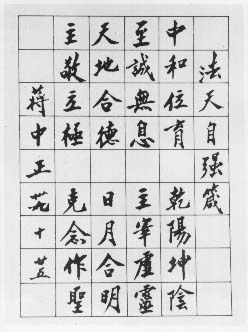 法天自强箴
中和位育 乾陽坤陰
至誠無息 主宰虛靈
天地合德 日月合明
主敬立極 克念作聖
蔣中正 廿九 十 廿五